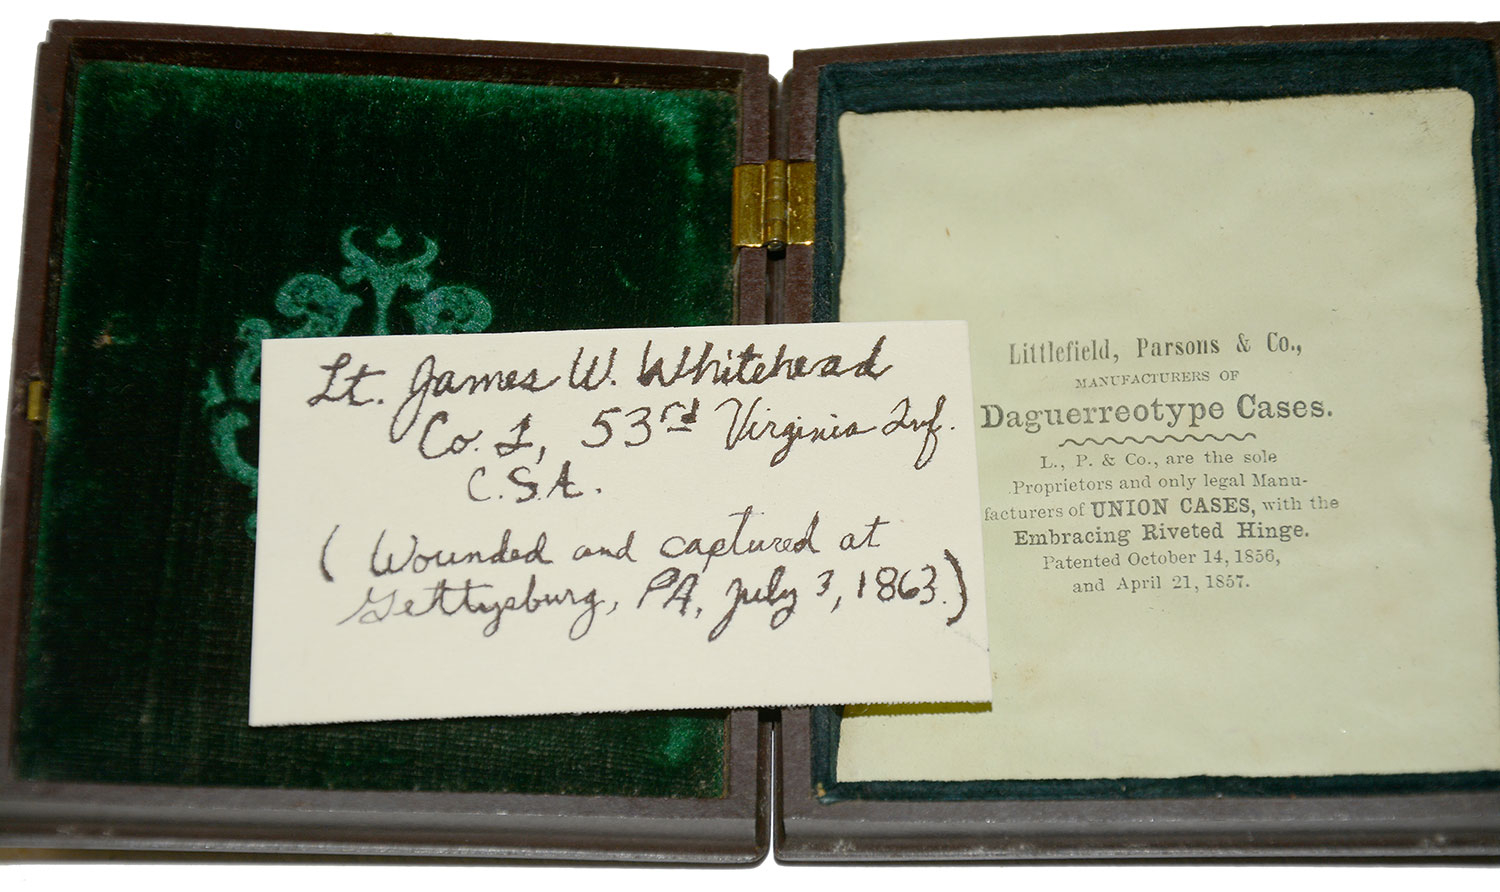 Lt. James W. Whitehead
Co. I, 53rd Virginia Inf.
C.S.A.
(Wounded and captured at
Gettysburg, PA, July 3, 1863.)
Littlefield, Parsons & Co.,
MANUFACTURERS OF
Daguerreotype Cases.
L., P. & Co., are the sole
Proprietors and only legal Manu-
facturers of UNION CASES, with the
Embracing Riveted Hinge.
Patented October 14, 1856,
and April 21, 1857.